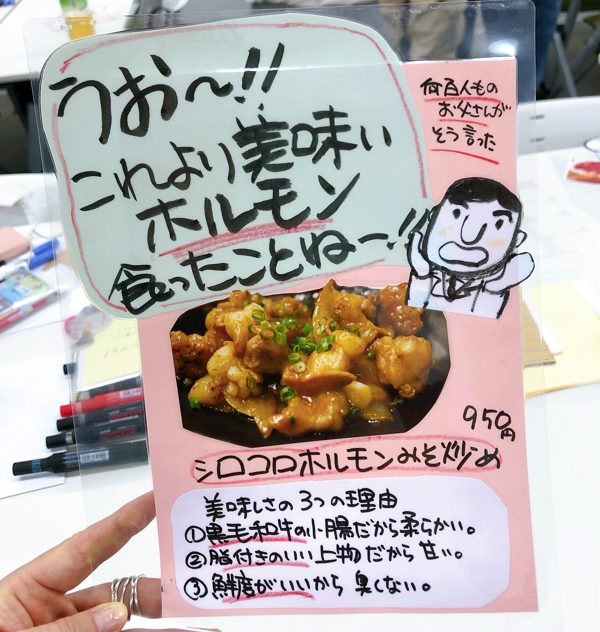 うお〜!!
これより美味い
ホルモン
食ったことねー!!
何百人もの
お父さんが
そう言った
950円
シロコロホルモンみそ炒め
美味しさの3つの理由
①黒毛和牛の小腸だから柔らかい。
②脂付きのいい上物だから甘い。
③鮮度がいいから臭くない。